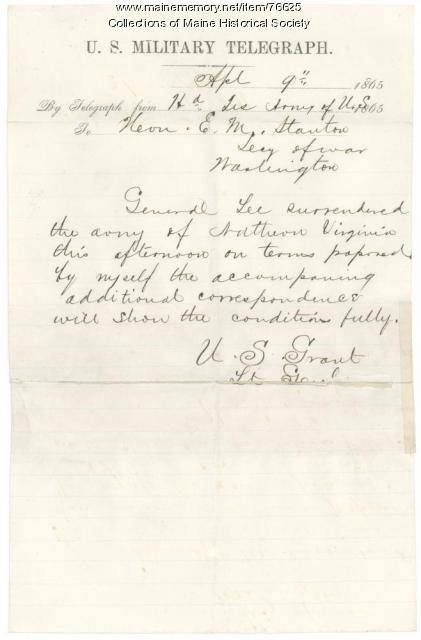 www.mainememory.net/item/76625
Collections of Maine Historical Society
U. S. MILITARY TELEGRAPH.
Apl 9th 1865
By Telegraph from Hd Qrs Army of U.S. 1865
To Hon. E. M. Stanton
Secy of war
Washington
General Lee surrendered
the army of Northern Virginia
this afternoon on terms proposed
by myself the accompaning
additional correspondence
will show the conditions fully.
U. S. Grant
Lt Genl